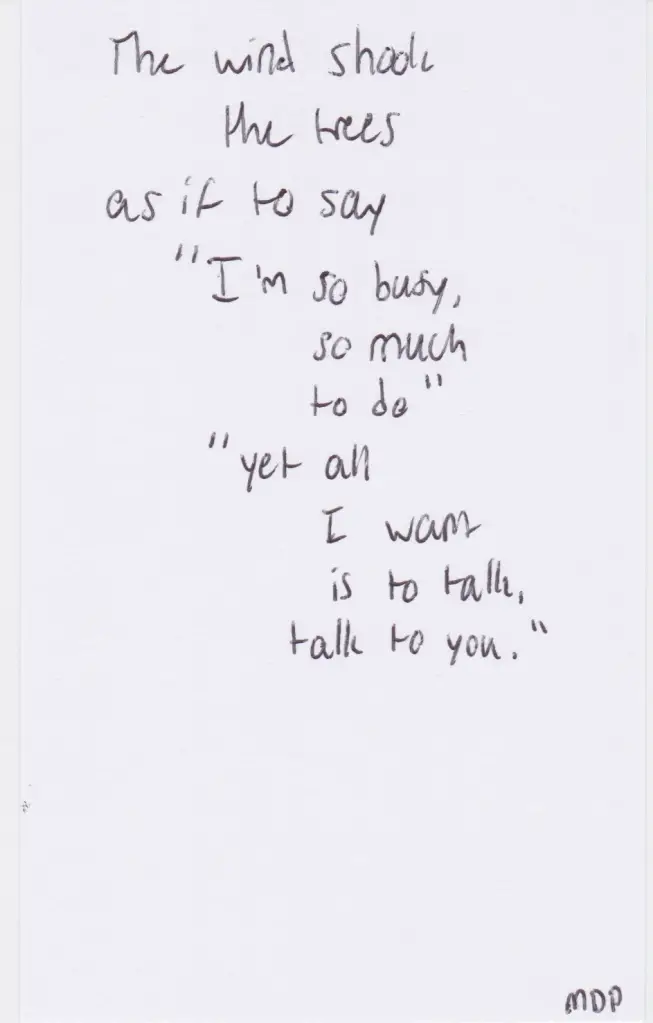 The wind shook
the trees
as if to say
"I'm so busy,
so much
to do"
"yet all
I want
is to talk,
talk to you."
MDP